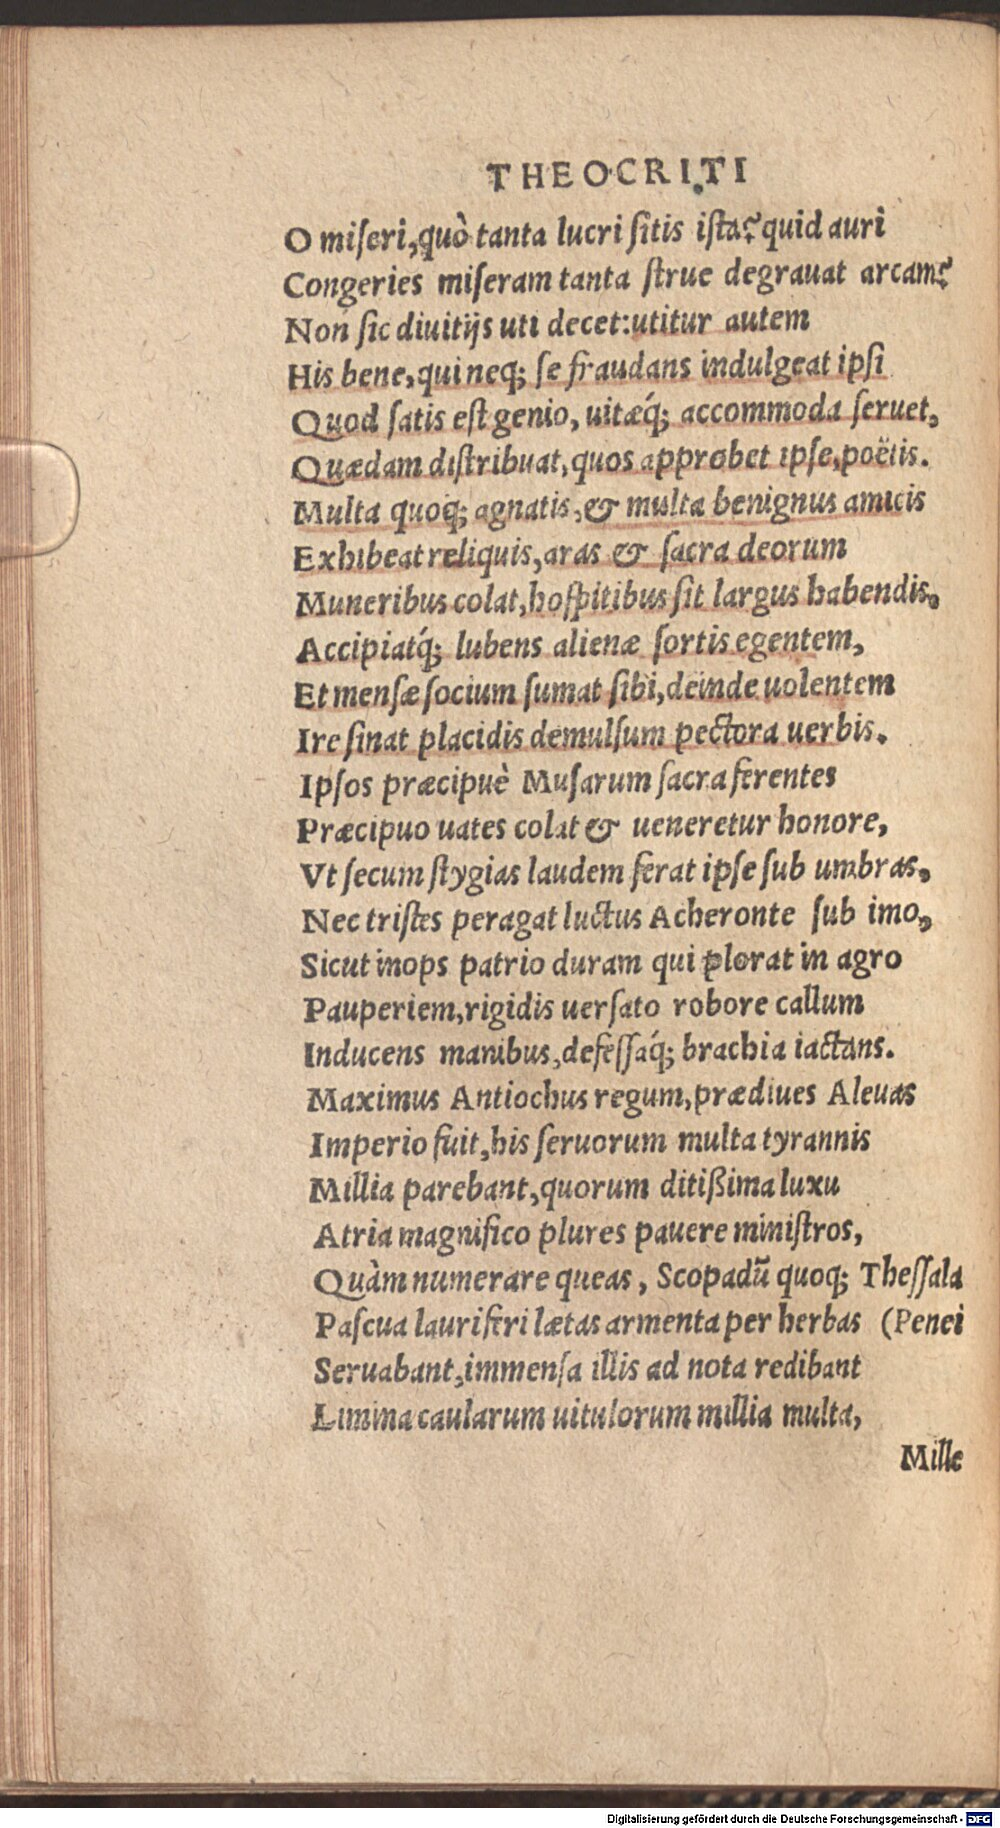 THEOCRITI
O miſeri, quò tanta lucri ſitis iſta? quid auri
Congeries miſeram tanta ſtrue degrauat arcam?
Non ſic diuitijs uti decet: utitur autem
His bene, qui neq; ſe fraudans indulgeat ipſi
Quod ſatis eſt genio, uitæq́; accommoda ſeruet,
Quædam diſtribuat, quos approbet ipſe, poëtis.
Multa quoq; agnatis, & multa benignus amicis
Exhibeat reliquis, aras & ſacra deorum
Muneribus colat, hoſpitibus ſit largus habendis,
Accipiatq́; lubens alienæ ſortis egentem,
Et menſæ ſocium ſumat ſibi, deinde uolentem
Ire ſinat placidis demulſum pectora uerbis.
Ipſos præcipuè Muſarum ſacra ferentes
Præcipuo uates colat & ueneretur honore,
Vt ſecum ſtygias laudem ferat ipſe ſub umbras,
Nec triſtes peragat luctus Acheronte ſub imo,
Sicut inops patrio duram qui plorat in agro
Pauperiem, rigidis uerſato robore callum
Inducens manibus, defeſſaq́; brachia iactans.
Maximus Antiochus regum, prædiues Aleuas
Imperio fuit, his ſeruorum multa tyrannis
Millia parebant, quorum ditißima luxu
Atria magnifico plures pauere miniſtros,
Quàm numerare queas, Scopadũ quoq; Theſſala
Paſcua lauriferi lætas armenta per herbas (Penei
Seruabant, immenſa illis ad nota redibant
Limina caularum uitulorum millia multa,
Mille
Digitalisierung gefördert durch die Deutsche Forschungsgemeinschaft - DFG